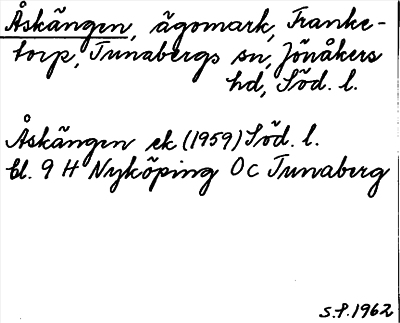 Åskängen, ägomark, Franke-
torp, Tunabergs sn, Jönåkers
hd, Söd. l.
Åskängen ek (1959) Söd. l.
bl. 9 H Nyköping Oc Tunaberg
S.P. 1962